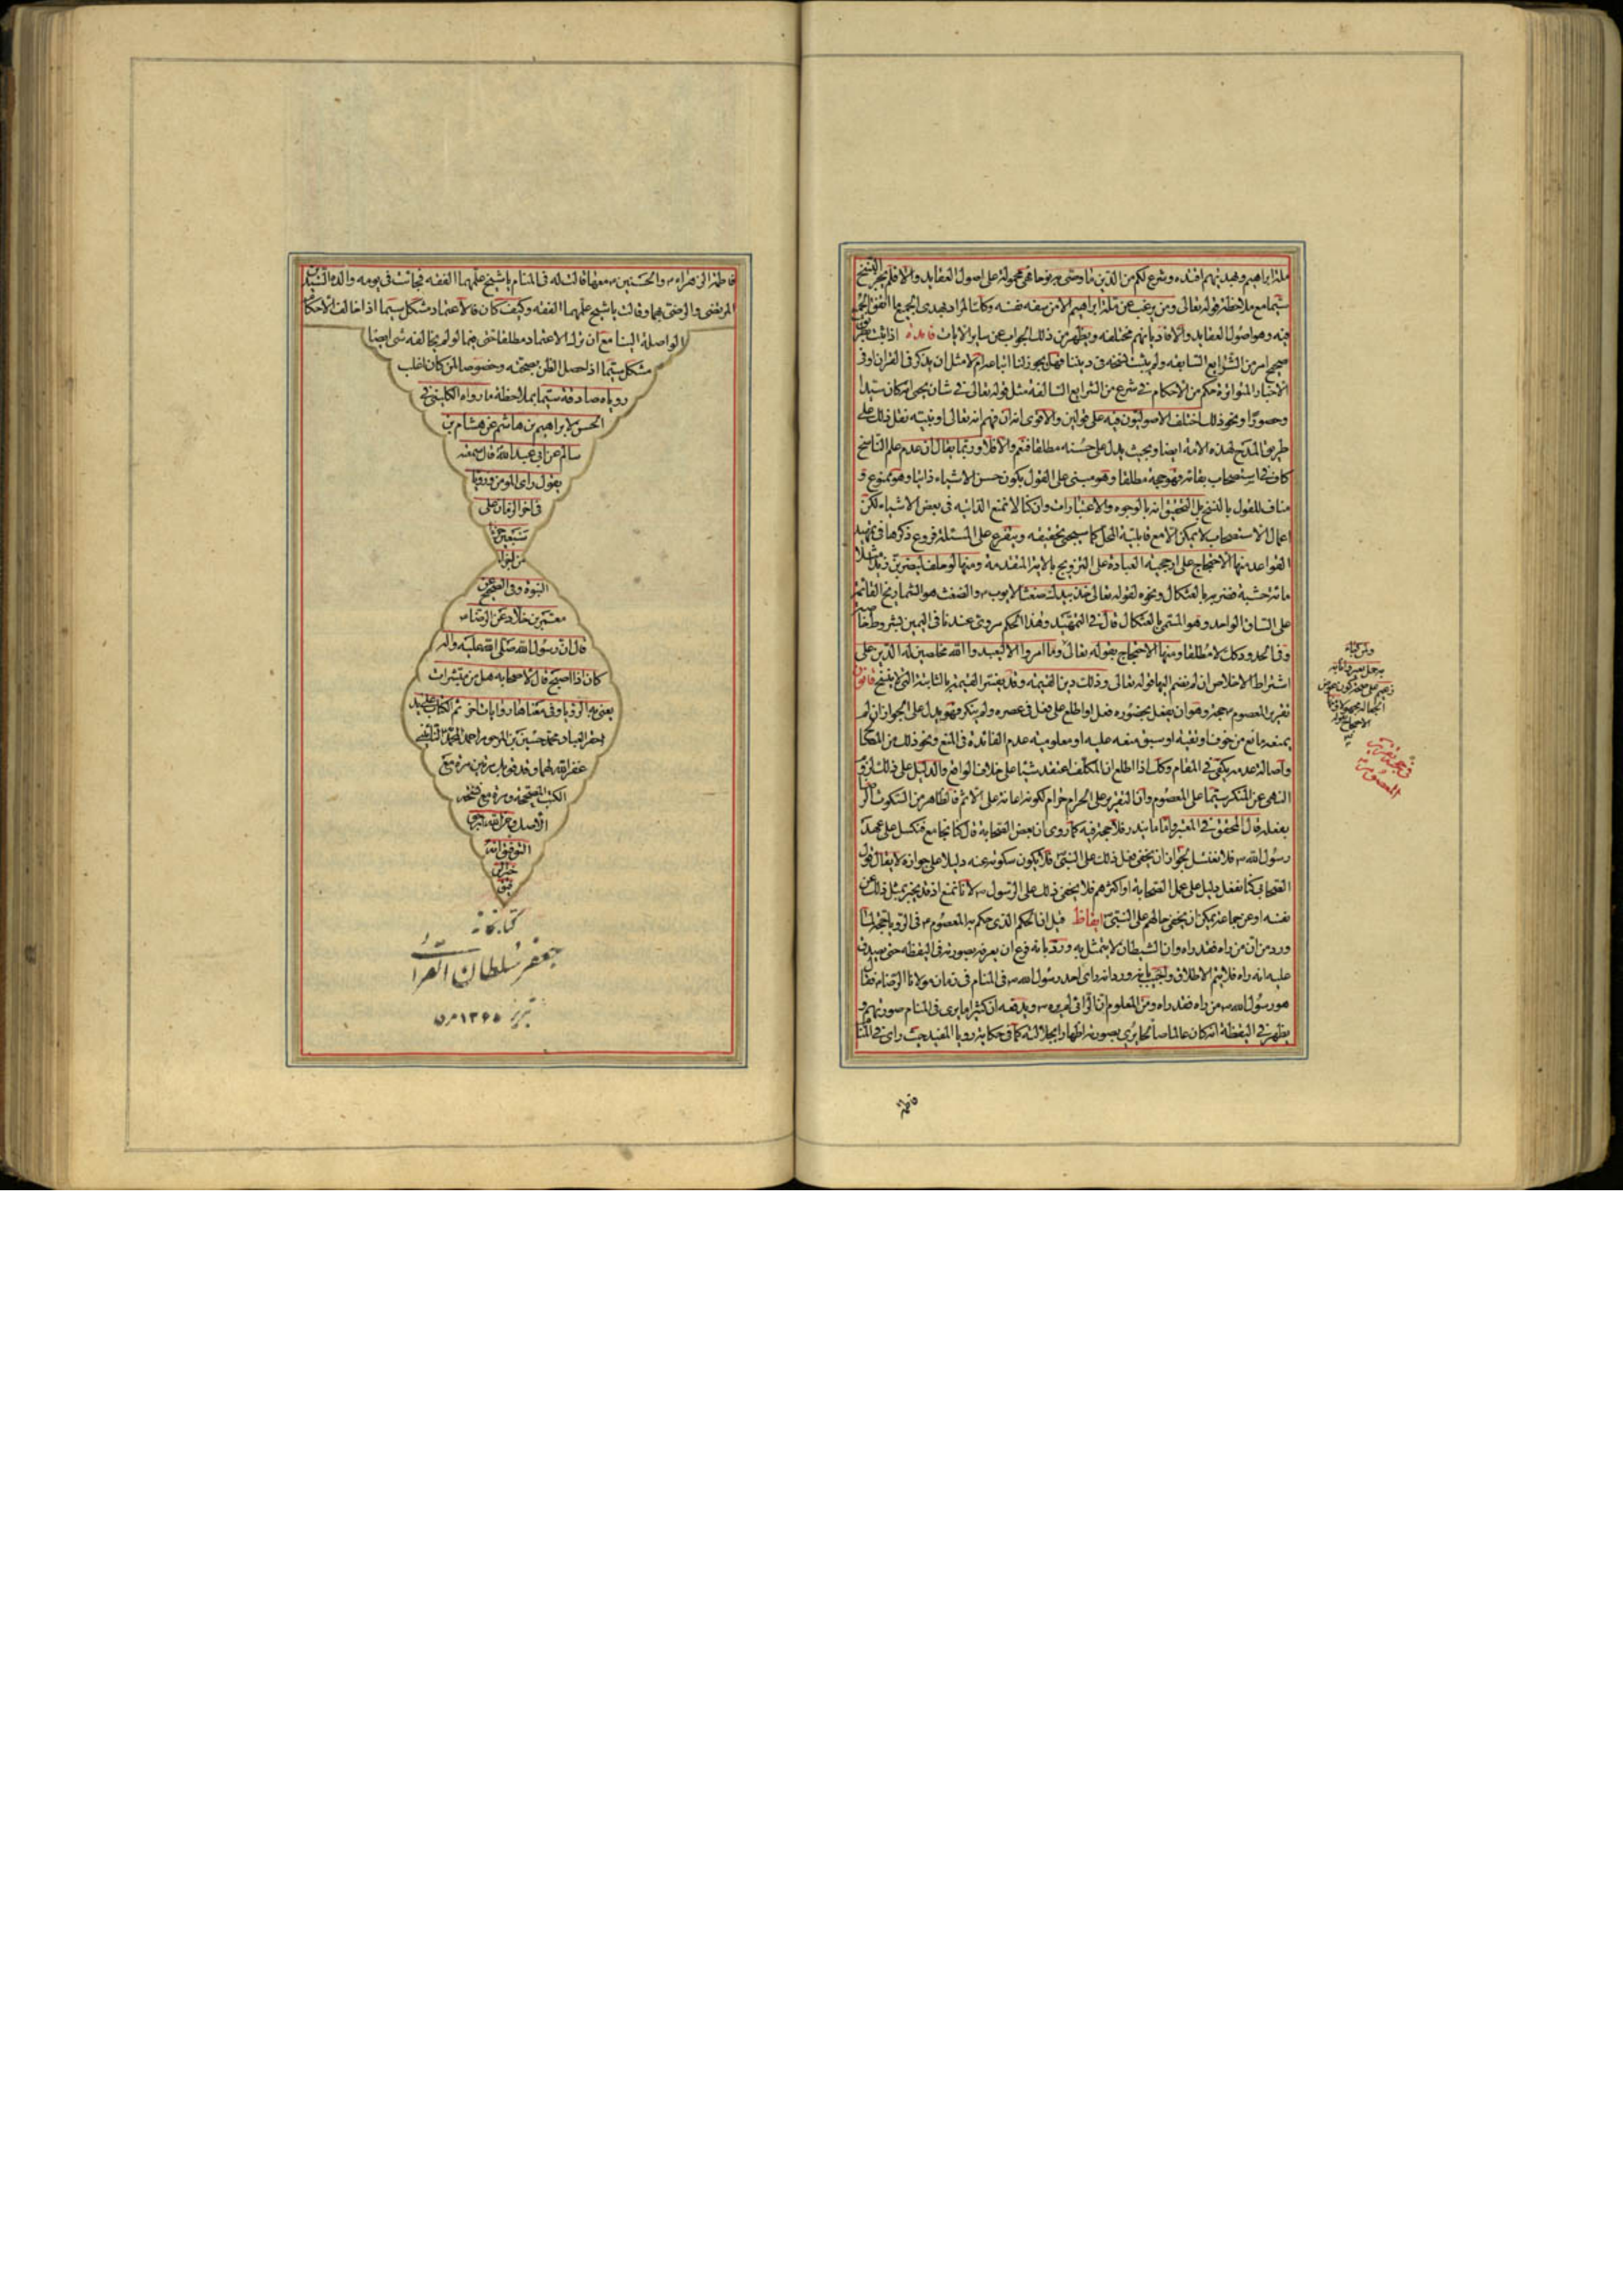 ملة ابراهيم وفبهديهم اقتده وشرع لكم من الدين ما وصى به نوحا فهي محمولة على اصول العقايد والا فلم يجز النسخ
سيما مع ملاحظة قوله تعالى ومن يرغب عن ملة ابراهيم الا من سفه نفسه وكك المراد بهدى الجميع ما اتفق الجميع
فيه وهو اصول العقايد والا فاديانهم مختلفة ويظهر من ذلك الجواب عن ساير الايات فائدة اذا ثبت بطريق
صحيح امر من الشرايع السابقة ولم يثبت نسخه في ديننا فهل يجوز لنا اتباعه ام لا مثل ان يذكر في القران او في
الاخبار المتواترة حكم من الاحكام في شرع من الشرايع السالفة مثل قوله تعالى في شان يحيى انه كان سيدا
وحصورا ونحو ذلك اختلف الاصوليون فيه على قولين والاقوى انه ان فهم انه تعالى او نبيه نقل ذلك على
طريق المدح لهذه الامة ايضا وبحيث يدل على حسنه مطلقا فنعم والا فلا وربما يقال ان عدم علم الناسخ
كاف في استصحاب بقائه فهو حجة مطلقا وهو مبني على القول بكون حسن الاشياء ذاتيا وهو ممنوع و
مناف للقول بالنسخ بل التحقيق انه بالوجوه والاعتبارات وان كنا لا نمنع الذاتية في بعض الاشياء لكن
اعمال الاستصحاب لا يمكن الا مع قابلية المحل كما سيجئ تحقيقه ويتفرع على المسئلة فروع ذكرها في تمهيد
القواعد منها الاحتجاج على ارجحية العبادة على التزويج بالاية المتقدمة ومنها لو حلف ليضربن زيدا مثلا
مائة خشبة فضربه بالعثكال ونحوه لقوله تعالى خذ بيدك ضغثا لايوب ع والضغث هو الشماريخ القائمة
على الساق الواحد وهو المسمى بالعثكال قال في التمهيد وهذا الحكم مروي عندنا في اليمين بشروط خاصة
وفي الحدود كك لا مطلقا ومنها الاحتجاج بقوله تعالى وما امروا الا ليعبدوا الله مخلصين له الدين على
اشتراط الاخلاص ان لم نضم اليها قوله تعالى وذلك دين القيمة وقد يفسر القيمة بالثابتة التي لا ينسخ قانون
تقرير المعصوم ع حجة وهو ان يفعل بحضوره فعل او اطلع على فعل في عصره ولم ينكر فهو يدل على الجواز ان لم
يمنعه مانع من خوف او تقية او سبق منعه عليه او معلومية عدم الفائدة في المنع ونحو ذلك من الحكم
واصالة عدمه يكفي في المقام وكك اذا اطلع ان المكلف اعتقد شيئا على خلاف الواقع والدليل على ذلك لزوم
النهي عن المنكر سيما على المعصوم وان التقرير على الحرام حرام لكونه اعانة على الاثم فالظاهر من السكوت الرضا
بفعله قال المحقق في المعتبر واما ما يندر فلا حجة فيه كما روى ان بعض الصحابة قال كنا نجامع فنكسل على عهد
رسول الله ص فلا نغتسل لجواز ان يخفى فعل ذلك على النبي فلا يكون سكوته عنه دليلا على جوازه لا يقال قول
الصحابي كنا نفعل دليل على عمل الصحابة او اكثرهم فلا يخفى ذلك على الرسول ص لانا نمنع اذ قد يخبر بمثل ذلك عن
نفسه او عن جماعة يمكن ان يخفى حالهم على النبي ص ايقاظ قيل ان الحكم الذي حكم به المعصوم ع في الرؤيا حجة لما
ورد من ان من راه فقد راه وان الشيطان لا يتمثل به ورد بانه فرع ان يعرفه بصورته في اليقظة حتى يصدق
عليه انه راه فلا يتم الاطلاق واجيب بانه ورد انه راى احد رسول الله ص في المنام في زمان مولانا الرضا ع فقال
هو رسول الله ص من راه فقد راه ومن المعلوم ان الرائي لم يره ص ويدفعه ان كثيرا ما يرى في المنام صورتهم و
يظهر في اليقظة انه كان عالما صالحا يرى بصورته اظهارا لجلالته كما في حكاية رويا المفيد حيث راى في المنام
فاطمة
في حجية تقرير
المعصوم
فاطمة الزهراء ع والحسنين ع معها قالت له في المنام يا شيخ علمهما الفقه فجائت في يومه والدة السيدين
المرتضى والرضي بهما وقالت يا شيخ علمهما الفقه وكيف كان فالاعتماد مشكل سيما اذا خالف الاحكام
الواصلة الينا مع ان ترك الاعتماد مطلقا حتى فيما لو لم يخالفه شئ ايضا
مشكل سيما اذا حصل الظن بصحته وخصوصا لمن كان اغلب
رؤياه صادقة سيما بملاحظة ما رواه الكليني في
الحسن لابراهيم بن هاشم عن هشام بن
سالم عن ابي عبد الله قال سمعته
يقول راى المومن ورؤياه
في اخر الزمان على
سبعين جزءا
من اجزاء
النبوة وفي الصحيح عن
معمر بن خلاد عن الرضا ع
قال ان رسول الله صلى الله عليه واله
كان اذا اصبح قال لاصحابه هل من مبشرات
يعني به الرؤيا وفي معناها روايات اخر تم الكتاب على يد
احقر العباد محمد حسين بن المرحوم احمد
غفر الله لهما وقد قوبل مرتين مرة مع
الكتب المصححة ومرة مع نسخة
الاصل ومن الله نرجو
التوفيق انه
خير
كتابخانه
جعفر سلطان القرائى
تبريز ۱۳۶۵ هـ ق